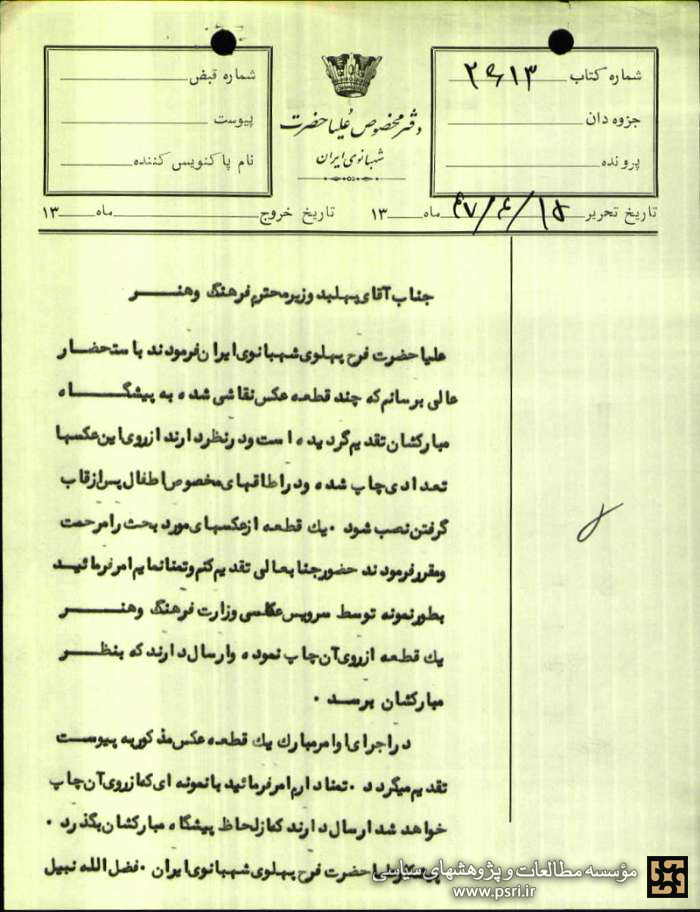 شماره کتاب ۲۶۱۳
جزوه دان
پرونده
دفتر مخصوص علیاحضرت
شهبانوی ایران
شماره قبض
پیوست
نام پاکنویس کننده
تاریخ تحریر ۴۷/۴/۱۵ ماه ۱۳ تاریخ خروج ماه ۱۳
جناب آقای پهلبد وزیر محترم فرهنگ و هنر
علیا حضرت فرح پهلوی شهبانوی ایران فرمودند باستحضار
عالی برسانم که چند قطعه عکس نقاشی شده به پیشگاه
مبارکشان تقدیم گردیده است و در نظر دارند از روی این عکسها
تعدادی چاپ شده و در اطاقهای مخصوص اطفال پس از قاب
گرفتن نصب شود . یك قطعه از عکسهای مورد بحث را مرحمت
و مقرر فرمودند حضور جنابعالی تقدیم کنم و تمنا نمایم امر فرمائید
بطور نمونه توسط سرویس عکاسی وزارت فرهنگ و هنر
یك قطعه از روی آن چاپ نموده و ارسال دارند که بنظر
مبارکشان برسد .
در اجرای اوامر مبارك یك قطعه عکس مذکور به پیوست
تقدیم میگردد . تمنا دارم امر فرمائید با نمونه ای که از روی آن چاپ
خواهد شد ارسال دارند که از لحاظ پیشگاه مبارکشان بگذرد .
علیا حضرت فرح پهلوی شهبانوی ایران . فضل الله نبیل
مؤسسه مطالعات و پژوهشهای سیاسی
www.psri.ir